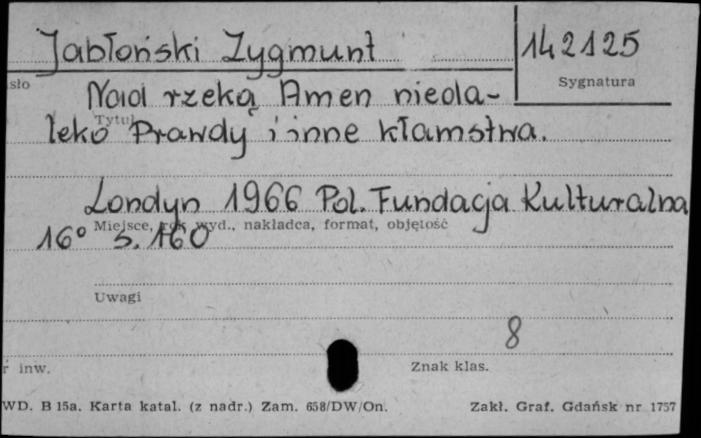 Jabłoński Zygmunt
142125
sło
Sygnatura
Nad rzeką Amen nieda-
Tytuł
leko Prawdy i inne kłamstwa.
Londyn 1966 Pol. Fundacja Kulturalna
Miejsce, rok wyd., nakładca, format, objętość
16° s. 160
Uwagi
8
r inw.
Znak klas.
WD. B 15a. Karta katal. (z nadr.) Zam. 658/DW/On.
Zakł. Graf. Gdańsk nr 1757